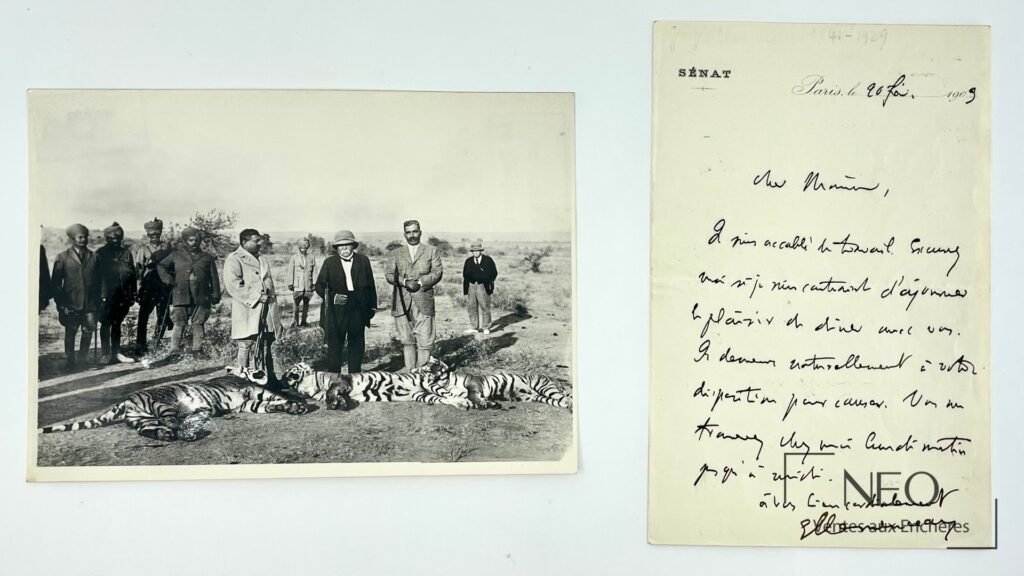 41-1929
SÉNAT
Paris, le 20 fév. 1909
cher Monsieur,
Je suis accablé de travail. Excusez
moi si je suis contraint d'ajourner
le plaisir de dîner avec vous.
Je demeure naturellement à votre
disposition pour causer. Vous me
trouverez chez moi lundi matin
jusqu'à midi.
cordialement
NEO
Ventes aux Enchères